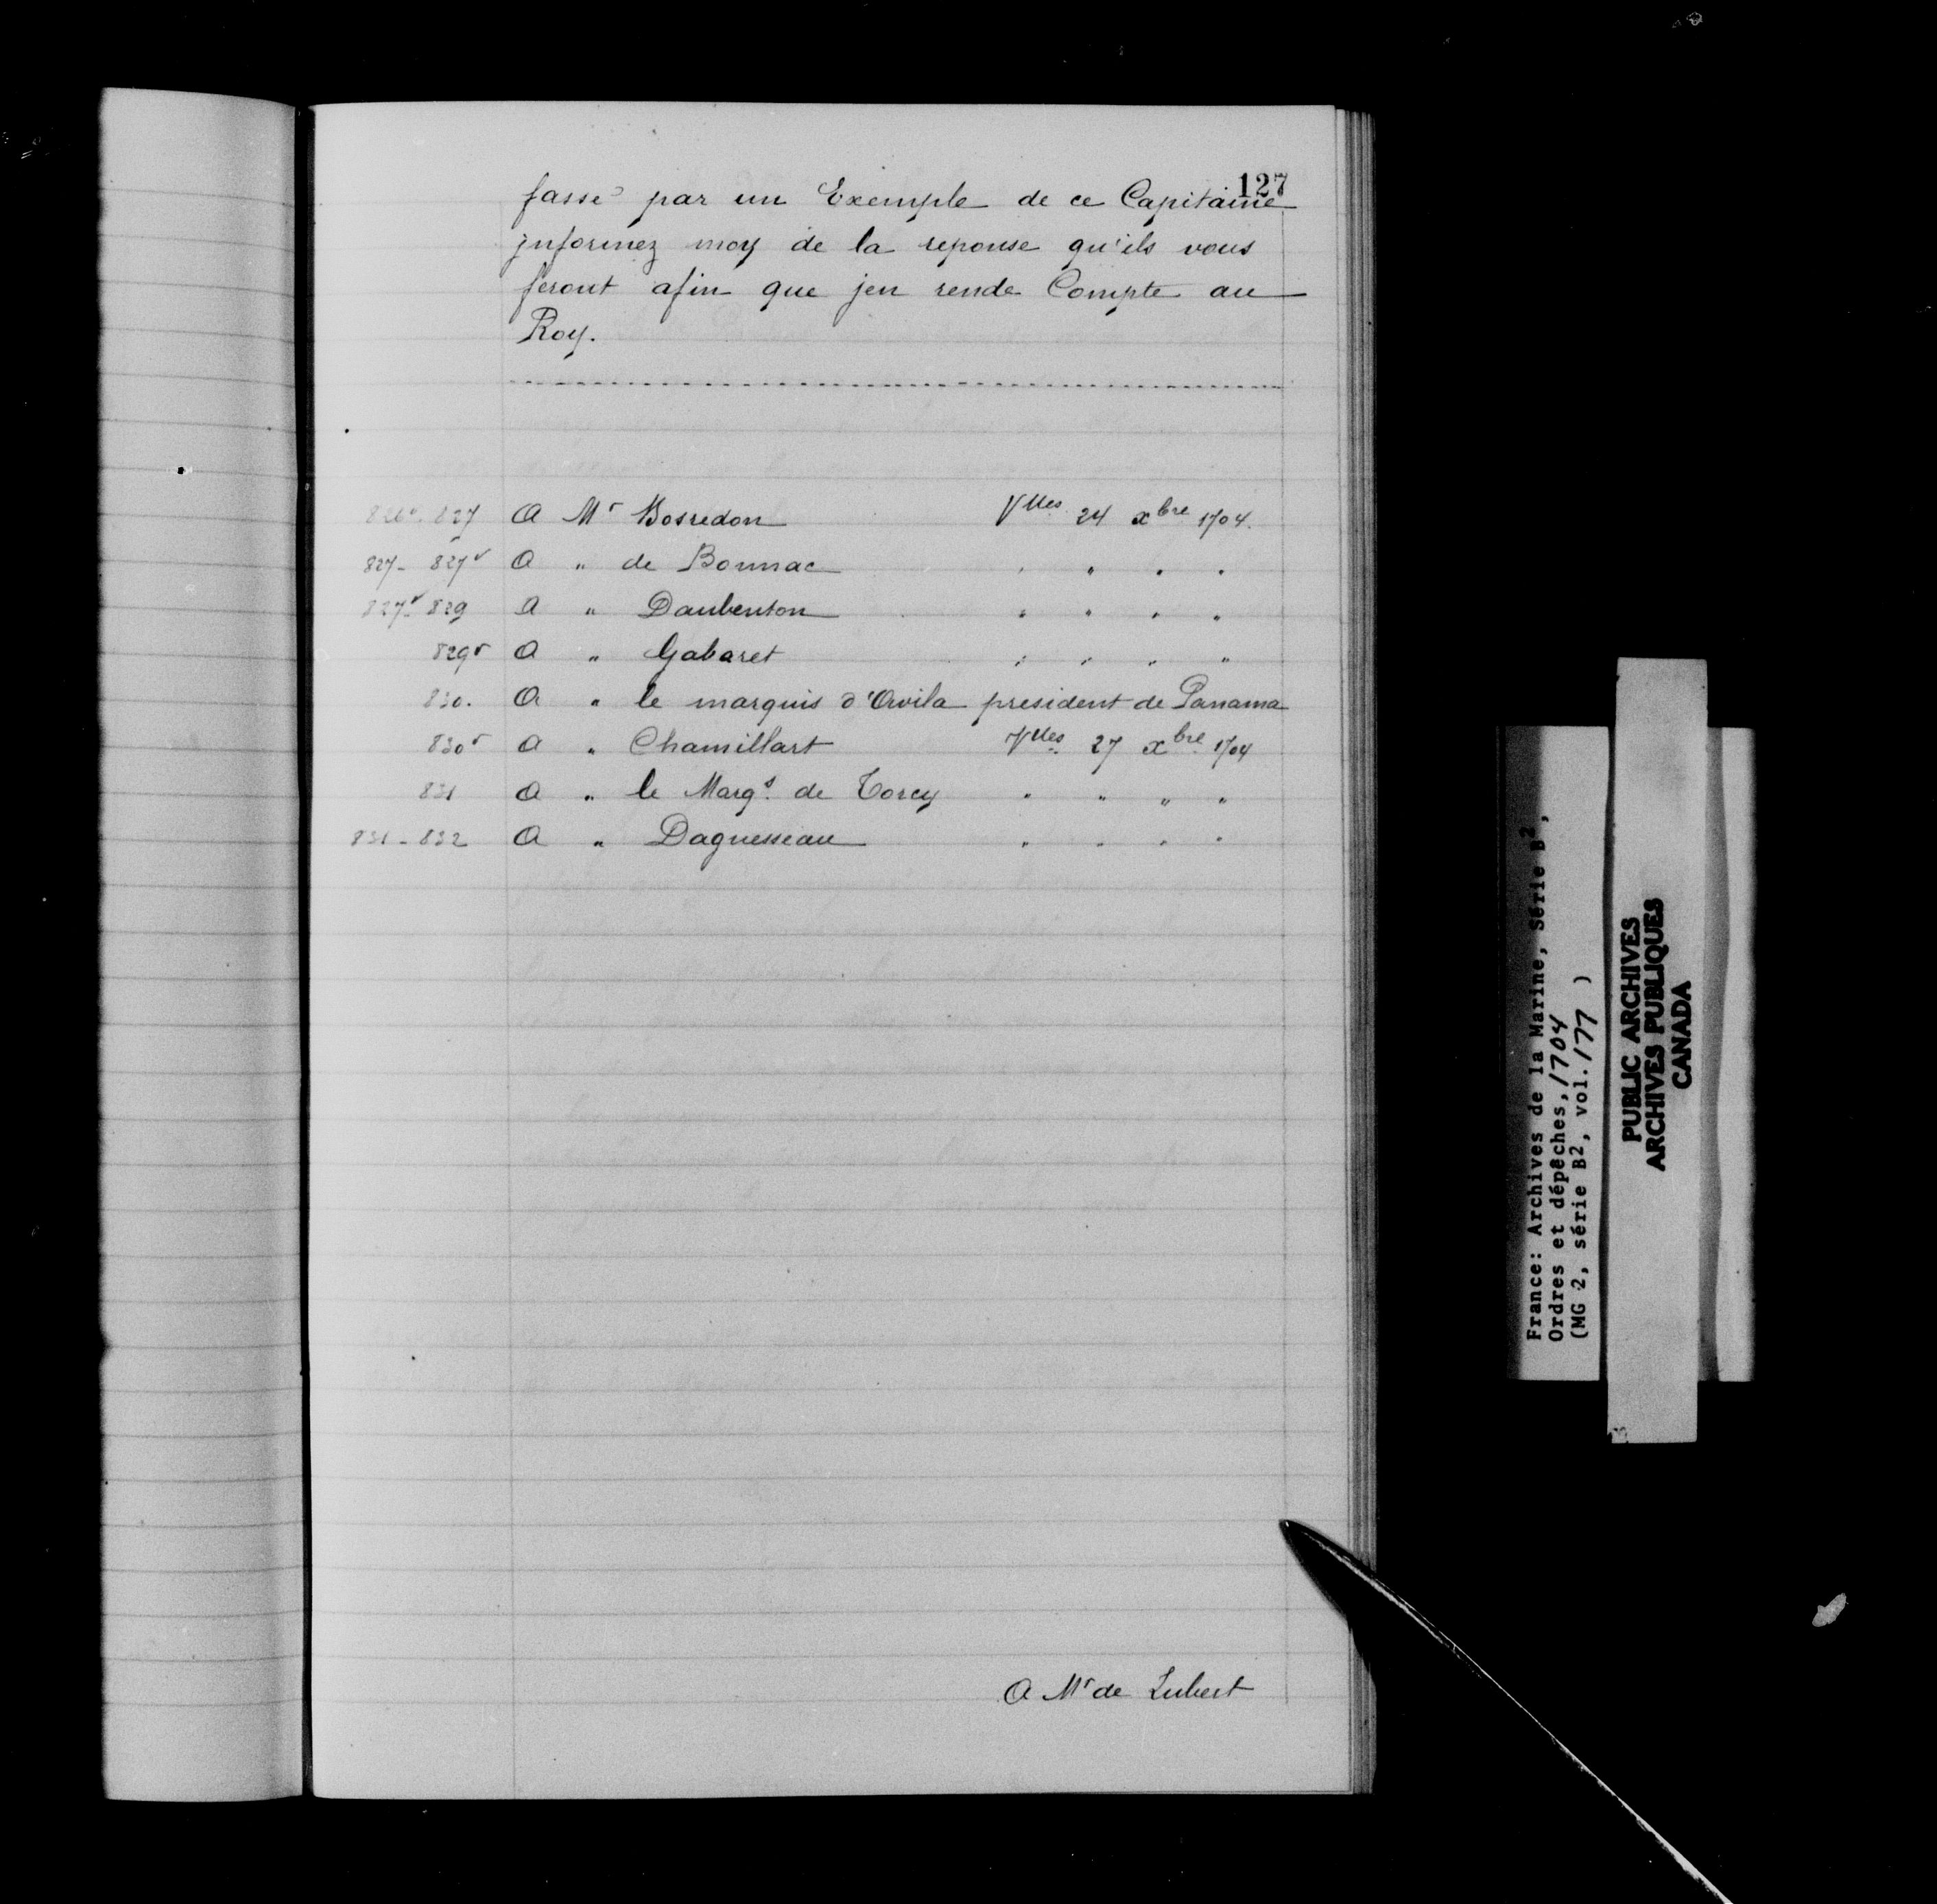 127
fasse par un Exemple de ce Capitaine
informez moy de la reponse qu'ils vous
feront afin que jen rende Compte au
Roy.
826v. 827 A Mr Bosredon Vlles 24 xbre 1704.
827 - 827v A " de Bonnac " " " "
827v - 829 A " Daubenton " " " "
829v A " Gabaret " " " "
830. A " le marquis d'Avila president de Panama
830v A " Chamillart Vlles 27 xbre 1704
831 A " le Marqs. de Torcy " " " "
831 - 832 A " Daguesseau " " " "
A Mr de Lubert
France: Archives de la Marine, Série B2,
Ordres et dépêches, 1704
(MG 2, série B2, vol. 177 )
PUBLIC ARCHIVES
ARCHIVES PUBLIQUES
CANADA